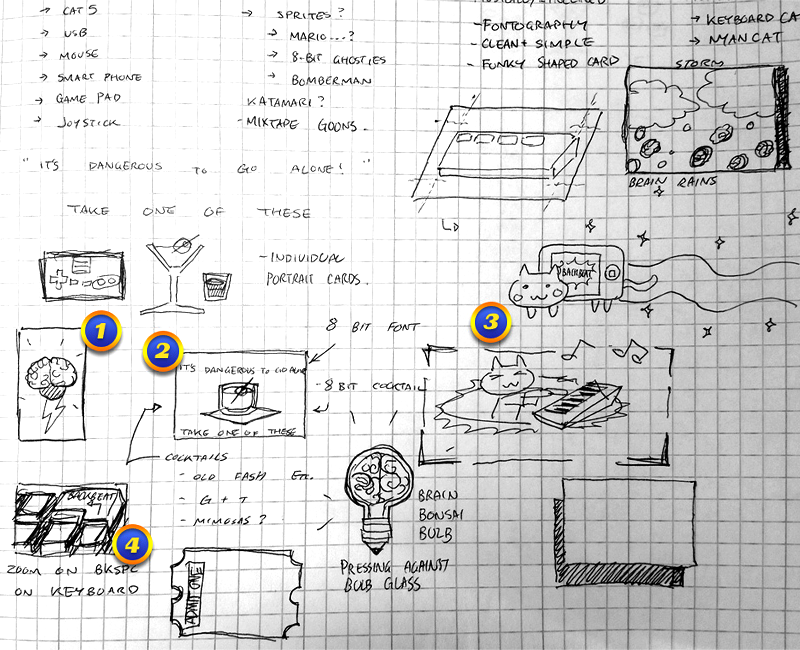 → CAT 5
→ USB
→ MOUSE
→ SMART PHONE
→ GAME PAD
→ JOYSTICK
→ SPRITES?
→ MARIO...?
→ 8-BIT GHOSTIES
→ BOMBERMAN
KATAMARI?
- MIXTAPE GOONS.
- FONTOGRAPHY
- CLEAN + SIMPLE
- FUNKY SHAPED CARD
→ KEYBOARD CA
→ NYAN CAT
STORM
BRAIN RAINS
"IT'S DANGEROUS TO GO ALONE!"
TAKE ONE OF THESE
- INDIVIDUAL
PORTRAIT CARDS.
BACKBEAT
1
2
3
8 BIT FONT
IT'S DANGEROUS TO GO ALONE
TAKE ONE OF THESE
- 8 BIT COCKTAIL
COCKTAILS
- OLD FASH ETC.
- G + T
- MIMOSAS?
BACKBEAT
4
ZOOM ON BKSPC
ON KEYBOARD
ADMIT ONE
BRAIN
BONSAI
BULB
PRESSING AGAINST
BULB GLASS